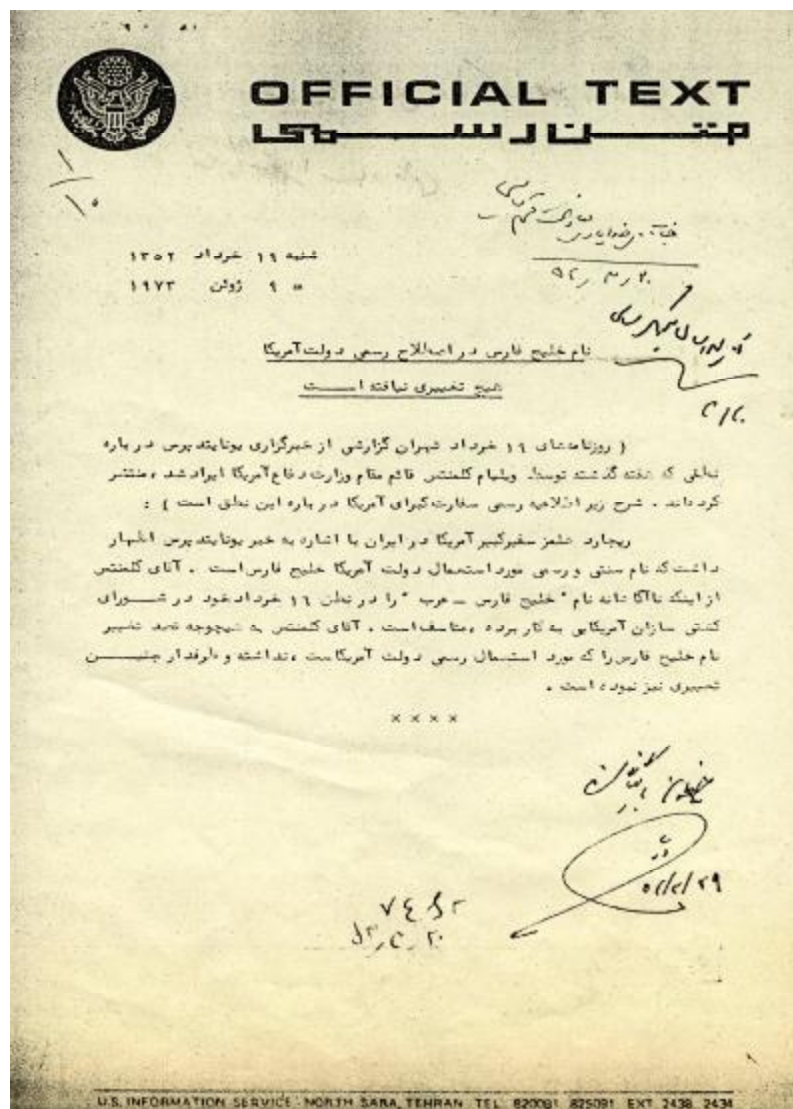 OFFICIAL TEXT
متن رسمی
۱/۱۰
شنبه ۱۹ خرداد ۱۳۵۲
" ۹ ژوئن ۱۹۷۳
نام خلیج فارس در اصطلاح رسمی دولت آمریکا
هیچ تغییری نیافته است
( روزنامه‌های ۱۹ خرداد تهران گزارشی از خبرگزاری یونایتدپرس در باره
نطقی که هفته گذشته توسط ویلیام کلمنتس قائم مقام وزارت دفاع آمریکا ایراد شد ، منتشر
کرده‌اند . شرح زیر اطلاعیه رسمی سفارت کبرای آمریکا در باره این نطق است ) :
ریچارد هلمز سفیرکبیر آمریکا در ایران با اشاره به خبر یونایتدپرس اظهار
داشت که نام سنتی و رسمی مورد استعمال دولت آمریکا خلیج فارس است . آقای کلمنتس
از اینکه ناآگاهانه نام " خلیج فارس ــ عرب " را در نطق ۱۶ خرداد خود در شورای
کشتی سازان آمریکایی به کار برده ، متاسف است . آقای کلمنتس به هیچوجه قصد تغییر
نام خلیج فارس را که مورد استعمال رسمی دولت آمریکاست ، نداشته و طرفدار چنین
تغییری نیز نبوده است .
× × × ×
U.S. INFORMATION SERVICE NORTH SABA, TEHRAN TEL 820091 825091 EXT 2438 2434